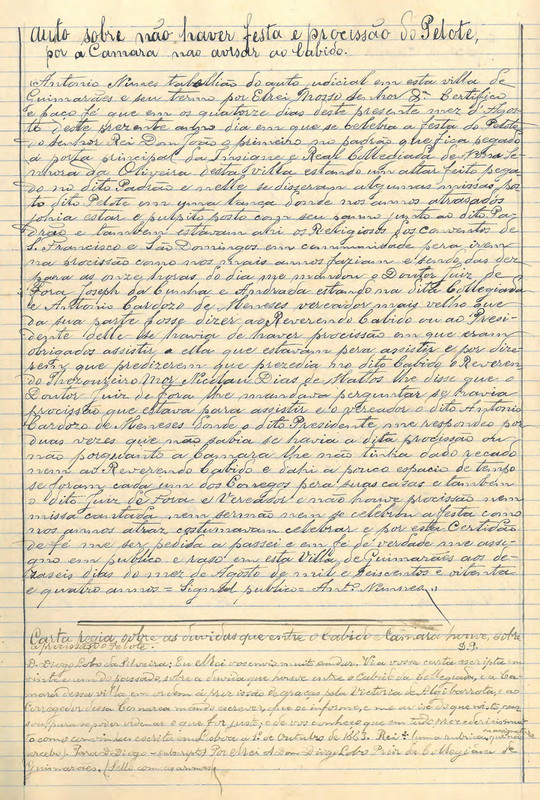 Auto sobre não haver festa e procissão do Pelote,
por a Camara não avisar ao Cabido.
Antonio Nunes taballião do auto judicial em esta villa de
Guimarães e seu termo por Elrei Nosso Senhor &ª Certifico
e faço fé que em os quatorze dias deste presente mez d'Agos-
to deste prezente anno dia em que se celebra a festa do Pelote
do senhor Rei Dom João o primeiro no padrão que fica pegado
á porta principal da Insigne e Real Collegiada de Nossa Se-
nhora da Oliveira desta villa estando um altar feito pega-
do no dito Padrão e nelle se disseram algumas missas pos-
to dito Pelote em uma lança donde nos annos atrasados
sohia estar e pulpito posto com seu panno junto ao dito Pa-
drão e tambem estavam ahi os Religiosos dos conventos de
S. Francisco e São Domingos em communidade pera irem
na procissão como nos mais annos faziam e sendo das dez
para as onze horas do dia me mandou o Doutor Juiz de
Fora Joseph da Cunha e Andrada estando na dita Collegiada
e Antonio Cardozo de Meneses vereador mais velho que
da sua parte fosse dizer ao Reverendo Cabido ou ao Presi-
dente delle se havia de haver procissão em que eram
obrigados assistir a ella que estavam pera assistir e por dize-
rem que predizerem que prezedia no dito Cabido o Reveren-
do Thezoureiro Mor Nicolau Dias de Mattos lhe disse que o
Doutor Juiz de fora lhe mandava perguntar se havia
procissão que estava para assistir e o vereador o dito Antonio
Cardozo de Meneses donde o dito Presidente me respondeo por
duas vezes que não sabia se havia a dita procissão ou
não porquanto a Camara lhe não tinha dado recado
nem ao Reverendo Cabido e dahi a pouco espacio de tempo
se foram cada um dos Conegos pera suas casas e tambem
o dito Juiz de Fora e Vereador e não houve procissão nem
missa cantada nem sermão nem se celebrou a festa como
nos annos atraz costumavam celebrar e por esta Certidão
de fé me ser pedida a passei e em fé de verdade me assi-
gno em publico e raso em esta Villa de Guimarães aos de-
zaseis dias do mez de Agosto de mil e seiscentos e oitenta
e quatro annos = Signal publico = Antº Nunes,,
Carta regia, sobre as duvidas que entre o Cabido e Camara houve, sobre
a procissão do Pelote.
D. Diogo Lobo da Silveira; Eu Elrei vos envio muito saudar. Vi a vossa carta escripta em
vinte e um do passado, sobre a duvida que houve entre o Cabido da Collegiada, e a Ca-
mara dessa villa em ordem á procissão de graças pela Victoria de Aljubarrota; e ao
Corregedor dessa Comarca mando escrever, que se informe, e me avise do que nisto passou
para se poder ordenar o que for justo; e de vós conheço que em tudo procederieis mui-
to como convinha escripta em Lisboa a 1º de Outubro de 1663. Rei
D. Diogo Por Elrei A Dom Diogo Lobo Prior da Collegiada de
Guimarães. (Sello com as armas)